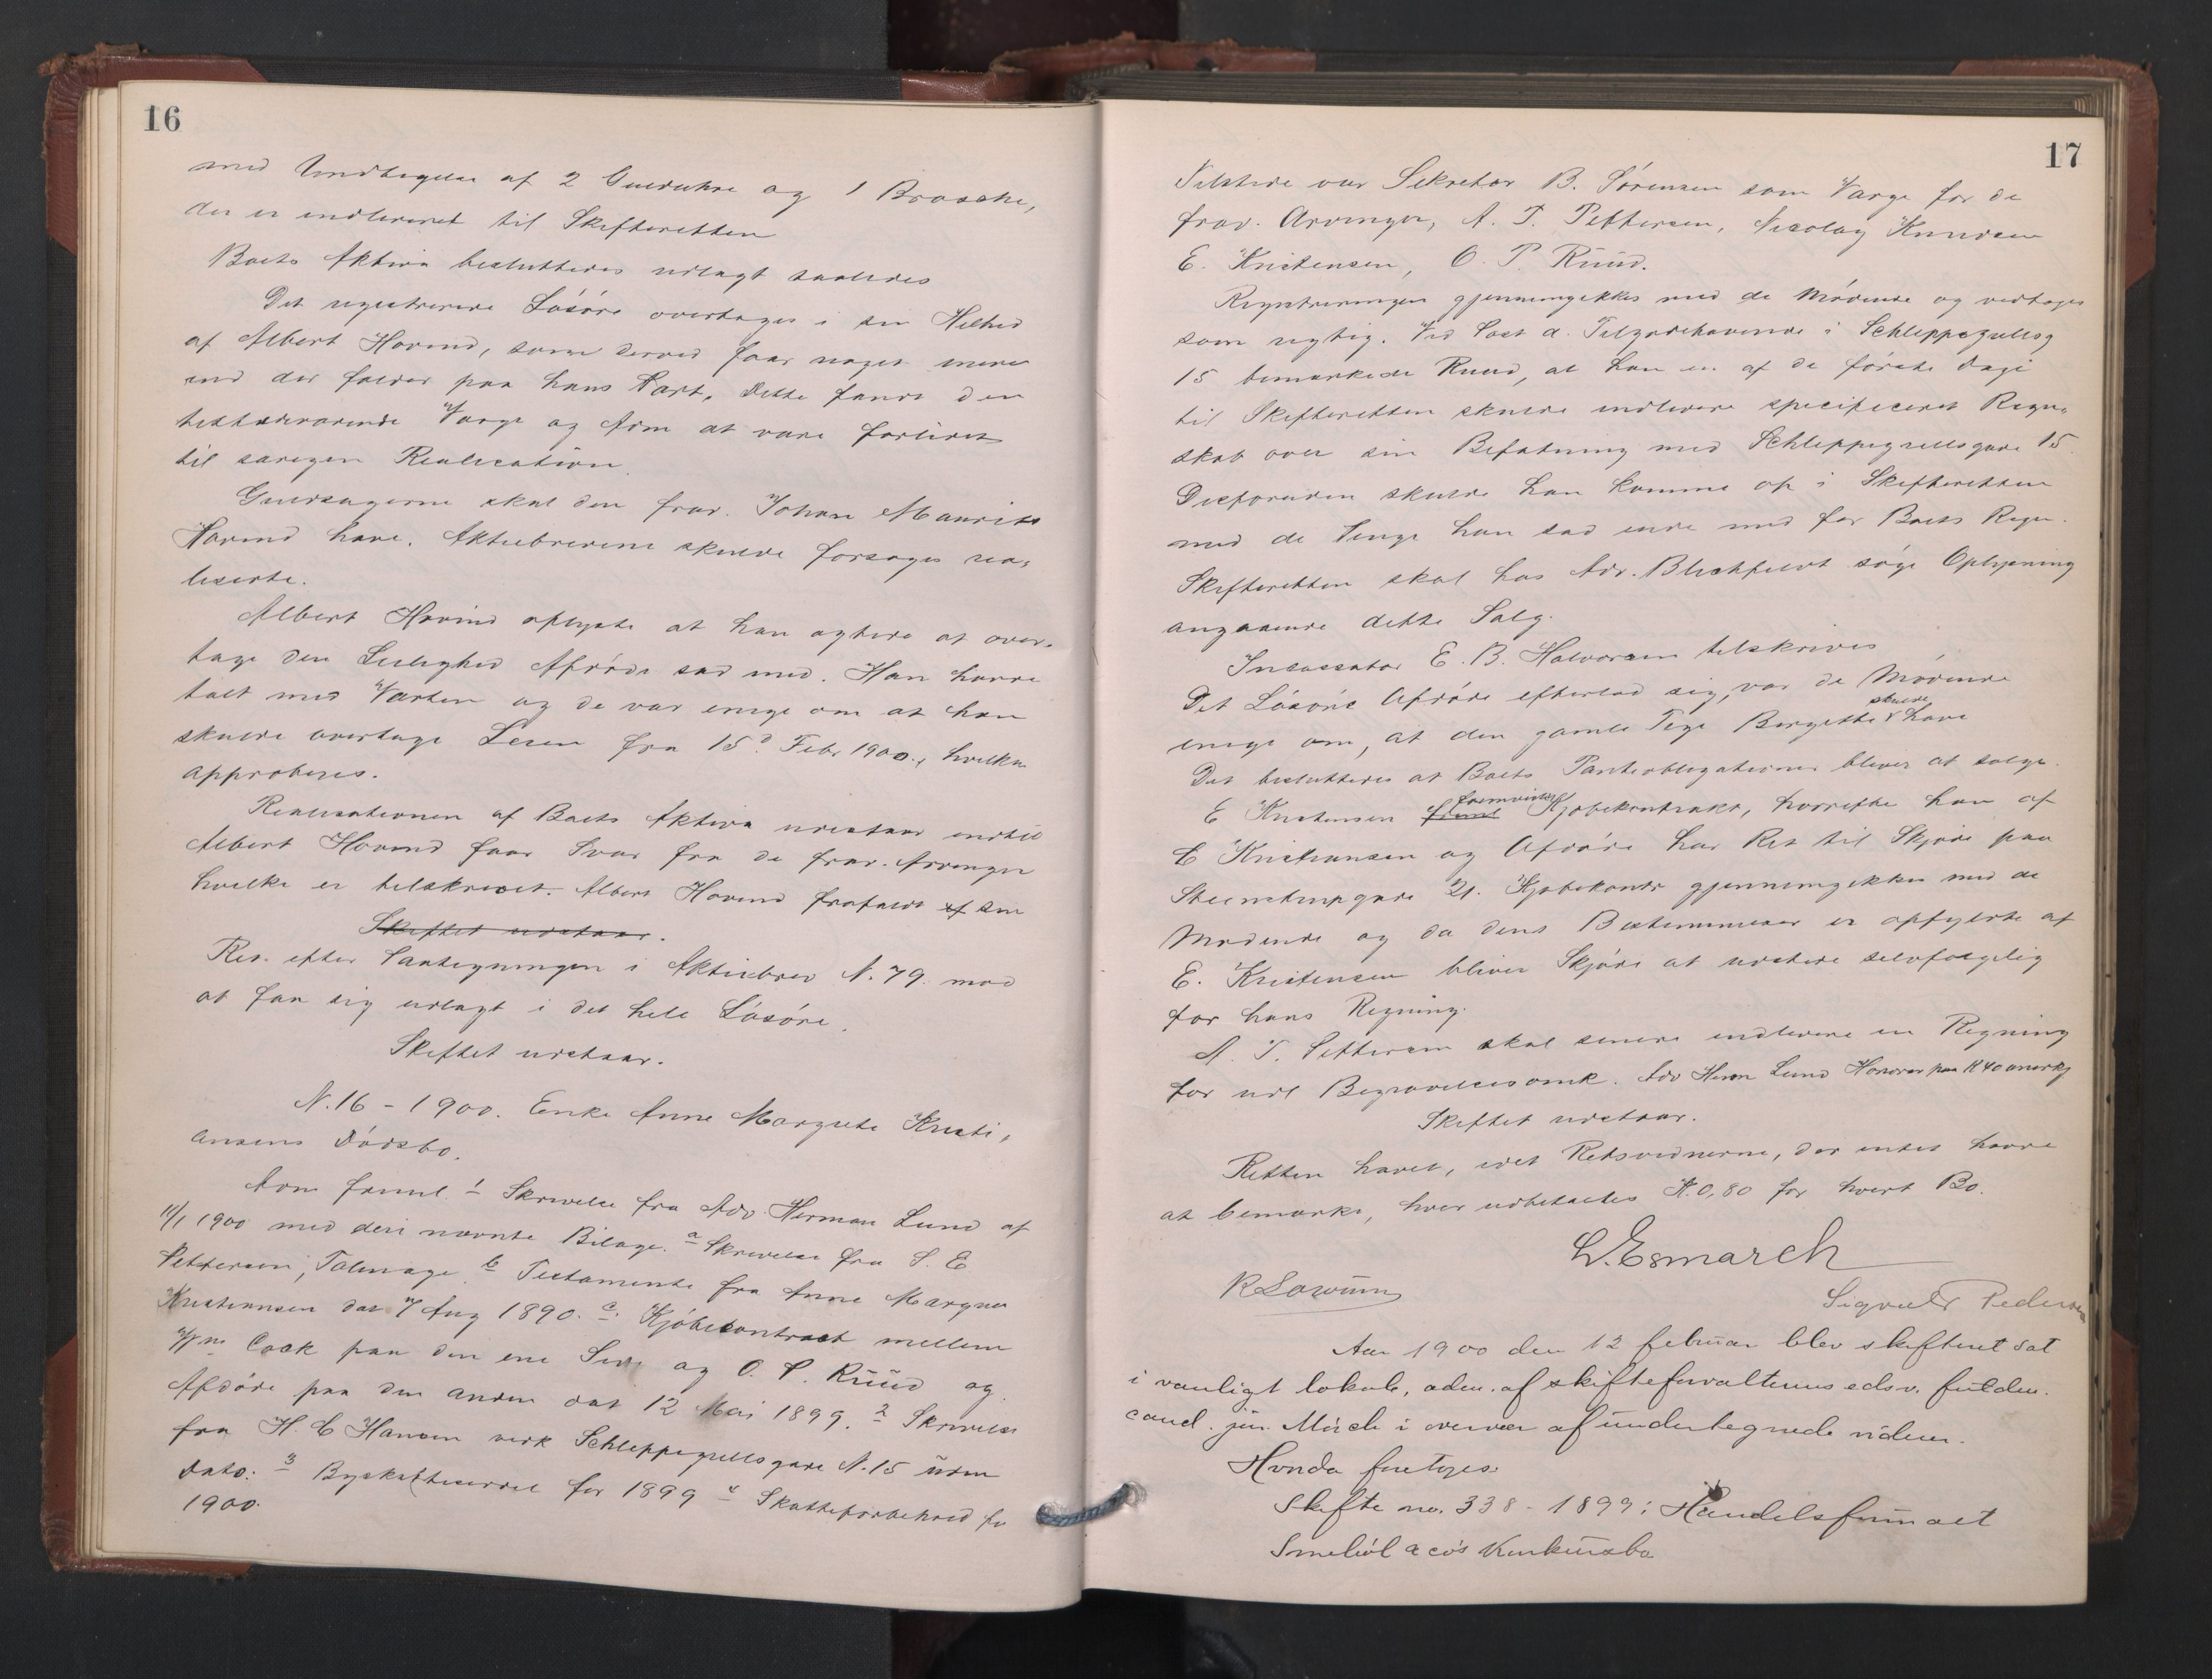 16
med Undtagelse af 2 Gulduhre og 1 Brosche,
der er indleveret til Skifteretten
Boets Aktiva besluttedes udlagt saaledes
Det registrerede Løsøre overtages i sin Helhed
af Albert Hovind, som derved faar noget mere
end der falder paa hans Part. Dette fandt den
tilstedeværende Værge og Adm at være forlidet
til særegen Realisation.
Guldsagerne skal den frav. Johan Maurits
Hovind have. Aktiebrevene skulde forsøges rea-
liserte.
Albert Hovind oplyste at han agtede at over-
tage den Leilighed Afdøde sad med. Han havde
talt med Værten og de var enige om at han
skulde overtage Leien fra 15d Febr 1900., hvilke
approberes.
Realisationen af Boets Aktiva udestaar indtil
Albert Hovind faar Svar fra de frav. Arvinger
hvilke er tilskrevet. Albert Hovind frafaldt af sin
Skiftet udstaar.
Ret efter Paategningen i Aktiebrev N. 79 mod
at faa sig udlagt i det hele Løsøre.
Skiftet udstaar.
N. 16 - 1900. Enke Anne Margrete Kristi-
ansens Dødsbo.
Adm freml. 1 Skrivelse fra Adv. Herman Lund af
11/1 1900 med deri nævnte Bilage. a Skrivelse fra S. E
Pettersen, Talmage b Testamente fra Anne Margrete
Kristiansen dat 7 Aug 1890. c. Kjøbecontract mellem
Wm Cook paa den ene Side og O. P. Ruud og
Afdøde paa den anden dat 12 Mai 1899. 2 Skrivelse
fra H. C Hansen verk Schleppegrellsgade N. 15 uden
Dato. 3 Byskatteseddel for 1899 4 Skatteforbehold for
1900.
17
Tilstede var Sekretær B. Sørensen som Værge for de
frav. Arvinger, A. T. Pettersen, Nicolay Knudsen
E. Kristensen, O. P. Ruud.
Registreringen gjennemgikkes med de Mødende og vedtoges
som rigtig. Ved Post a. Tilgodehavende i Schleppegrellsg
15 bemærkede Ruud, at han en af de første Dage
til Skifteretten skulde indlevere specificeret Regn-
skab over sin Befatning med Schleppegrellsgade 15.
Desforuden skulde han komme op i Skifteretten
med de Penge han sad inde med for Boets Regn.
Skifteretten skal hos Adv. Blichfeldt søge Oplysning
angaaende dette Salg.
Incassator E. B. Halvorsen tilskrives
Det Løsøre Afdøde efterlod sig, var de Mødende
enige om, at den gamle Pige Borgithe skulde have
Det besluttedes at Boets Panteobligationer bliver at sælge.
E Kristensen freml fremviste Kjøbekontrakt, hvorefter han af
C Kristiansen og Afdøde har Ret til Skjøde paa
Steenstrupgade 21. Kjøbekontr gjennemgikkes med de
Mødende og da dens Bestemmelser er opfyldte af
E. Kristensen bliver Skjøde at udstede selvfølgelig
for hans Regning.
A. T. Pettersen skal senere indlevere en Regning
for udl Begravelsesomk. Adv Herm Lund Honorar paa K 40 anerkj
Skiftet udstaar.
Retten hævet, idet Retsvidnerne, der intet havde
at bemærke, hver udbetaltes K. 0,80 for hvert Bo.
L. Esmarch
Sigvald Pedersen
Aar 1900 den 12 februar blev skifteret sat
i vanligt lokale, adm. af skifteforvalterens edsv. fuldm.
cand. jur. Mørch i overvær af undertegnede vidner.
Hvorda foretoges:
Skifte no. 338 - 1899: Handelsfirmaet
& co's Konkursbo